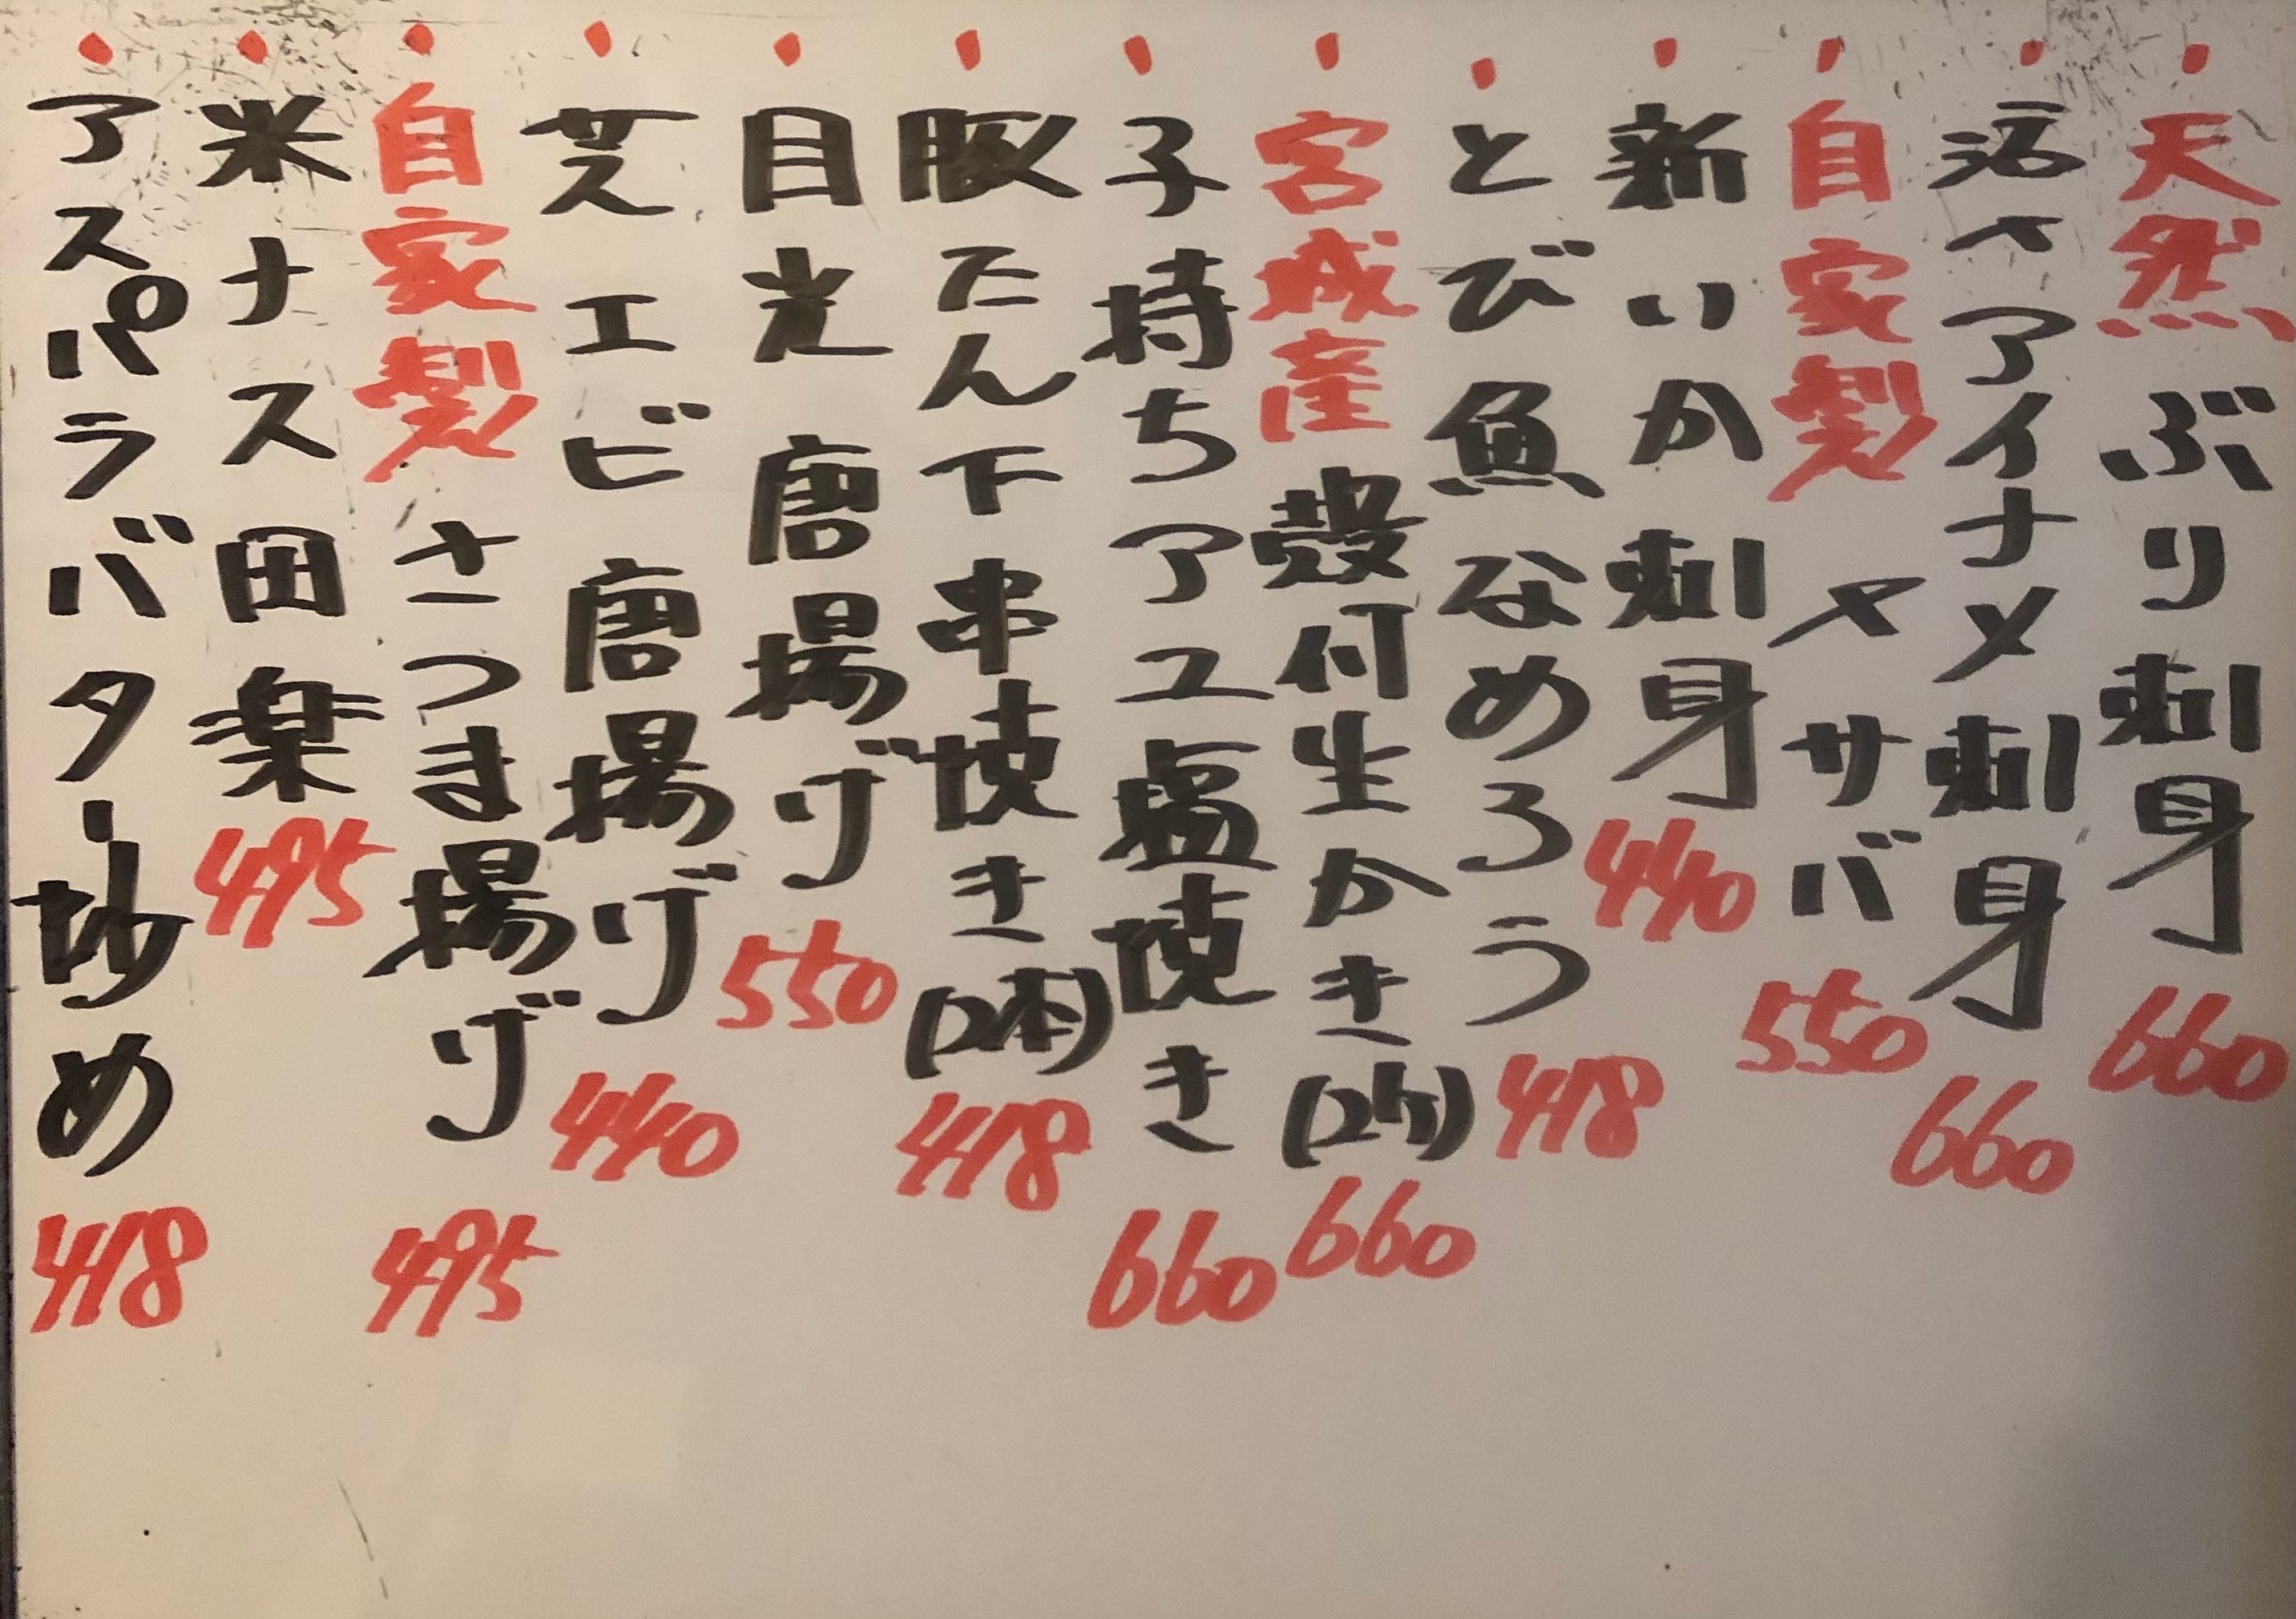 ・天然ぶり刺身 660
・活〆アイナメ刺身 660
・自家製 〆サバ 550
・新いか刺身 440
・とび魚なめろう 418
・宮城産殻付生かき(2ケ) 660
・子持ちアユ塩焼き 660
・豚たん下串焼き(2本) 418
・目光 唐揚げ 550
・芝エビ唐揚げ 440
・自家製さつま揚げ 495
・米ナス田楽 495
・アスパラバター炒め 418